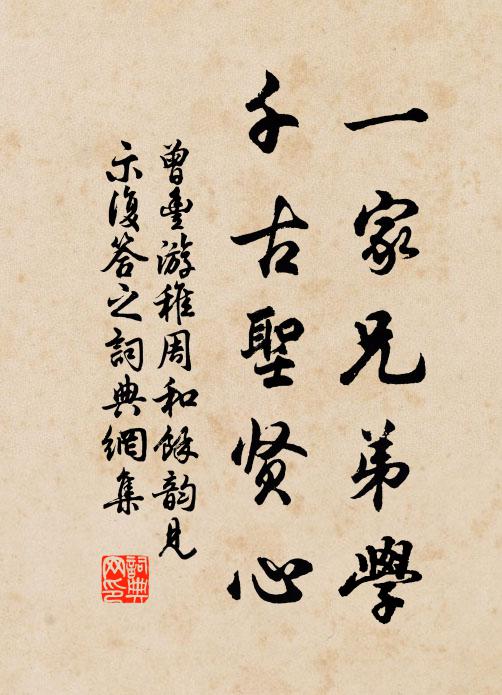 一家兄弟學
千古聖贤心
曾豊游稚周和餘韵見
示復答之詞典網集
詞典网印